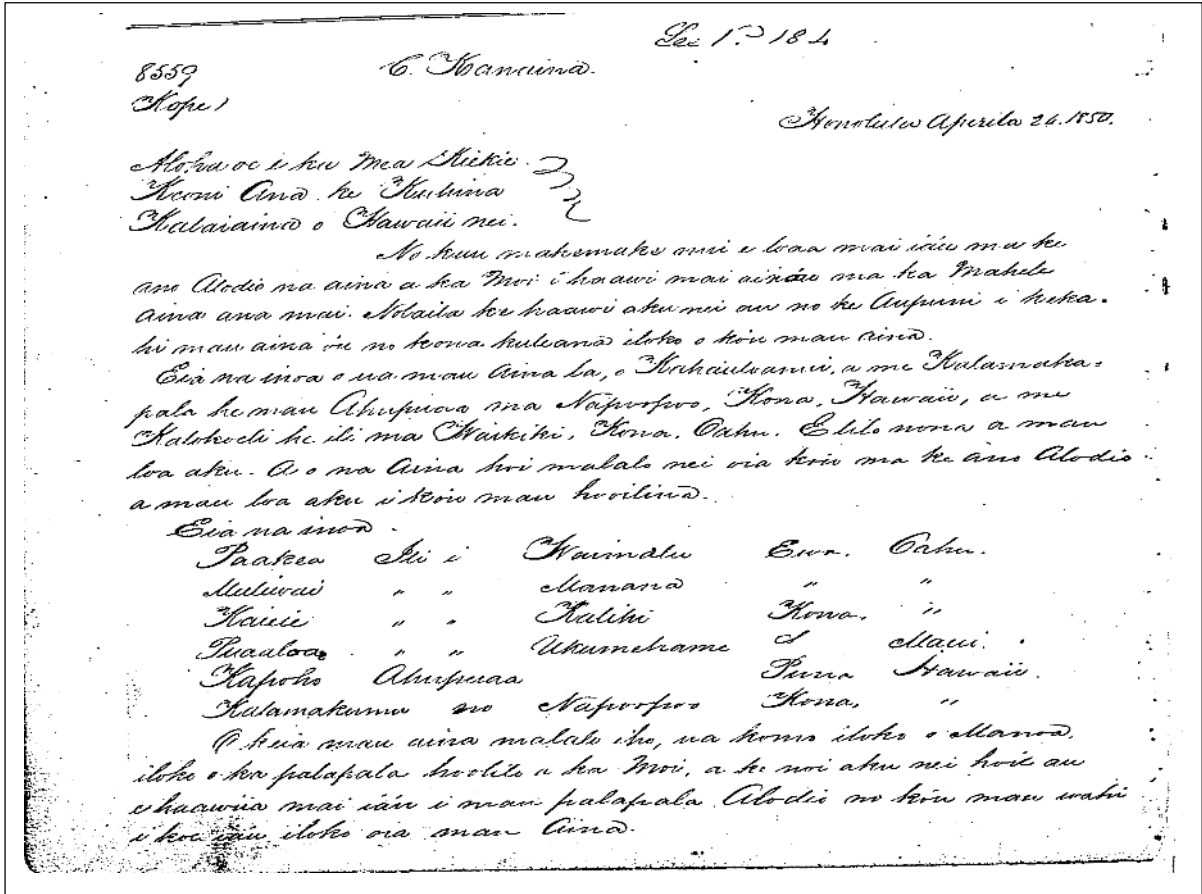 8559 C. Kanaina.
Kope)
Honolulu Aperila 26. 1850.
Aloha oe i ka Mea Kiekie
Keoni Ana ke Kuhina
Kalaiaina o Hawaii nei.
No kuu makemake nui e loaa mai iáu ma ke
ano Alodio na aina a ka Moi i haawi mai ai iáu ma ka Mahele
aina ana mai. Nolaila ke haawi aku nei au no ke Aupuni i keka-
hi mau aina óu no kona kuleana iloko o kóu mau aina.
Eia na inoa o ua mau Aina la, o Kahauloanui, a me Kalamaka-
pala he mau Ahupuaa ma Napoopoo, Kona, Hawaii, a me
Kalokoeli he ili ma Waikiki, Kona, Oahu. E lilo nona a mau
loa aku. A o na Aina hoi malalo nei oia kóu ma ke ano Alodio
a mau loa aku i kóu mau hooilina.
Eia na inoa.
Paakea Ili i Waimalu Ewa. Oahu.
Muliwai " " Manana " "
Kaiiie " " Kalihi Kona. "
Puaaloa " " Ukumehame Maui.
Kapoho Ahupuaa Puna Hawaii.
Kalamakumu no Napoopoo Kona, "
O keia mau aina malalo iho, ua komo iloko o Manoa,
iloko o ka palapala hoolilo a ka Moi, a ke noi aku nei hoi au
e haawiia mai iáu i mau palapala Alodio no kóu mau wahi
i koe iáu iloko oia mau Aina.